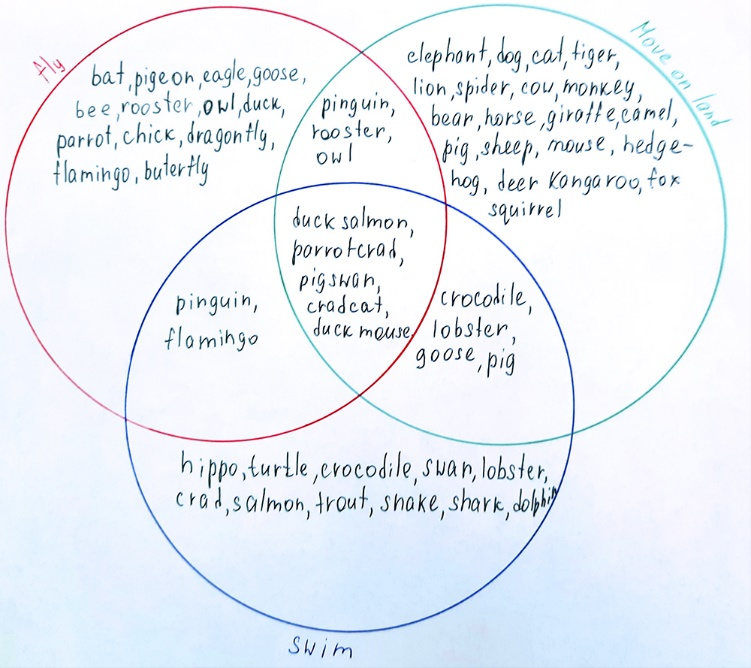 fly
bat, pigeon, eagle, goose,
bee, rooster, owl, duck,
parrot, chick, dragonfly,
flamingo, buterfly
pinguin,
rooster,
owl
Move on land
elephant, dog, cat, tiger,
lion, spider, cow, monkey,
bear, horse, giraffe, camel,
pig, sheep, mouse, hedge-
hog, deer Kangaroo, fox
squirrel
duck salmon,
parrotcrad,
pigswan,
cradcat,
duck mouse
pinguin,
flamingo
crocodile,
lobster,
goose, pig
hippo, turtle, crocodile, swan, lobster,
crad, salmon, trout, snake, shark, dolphin
swim